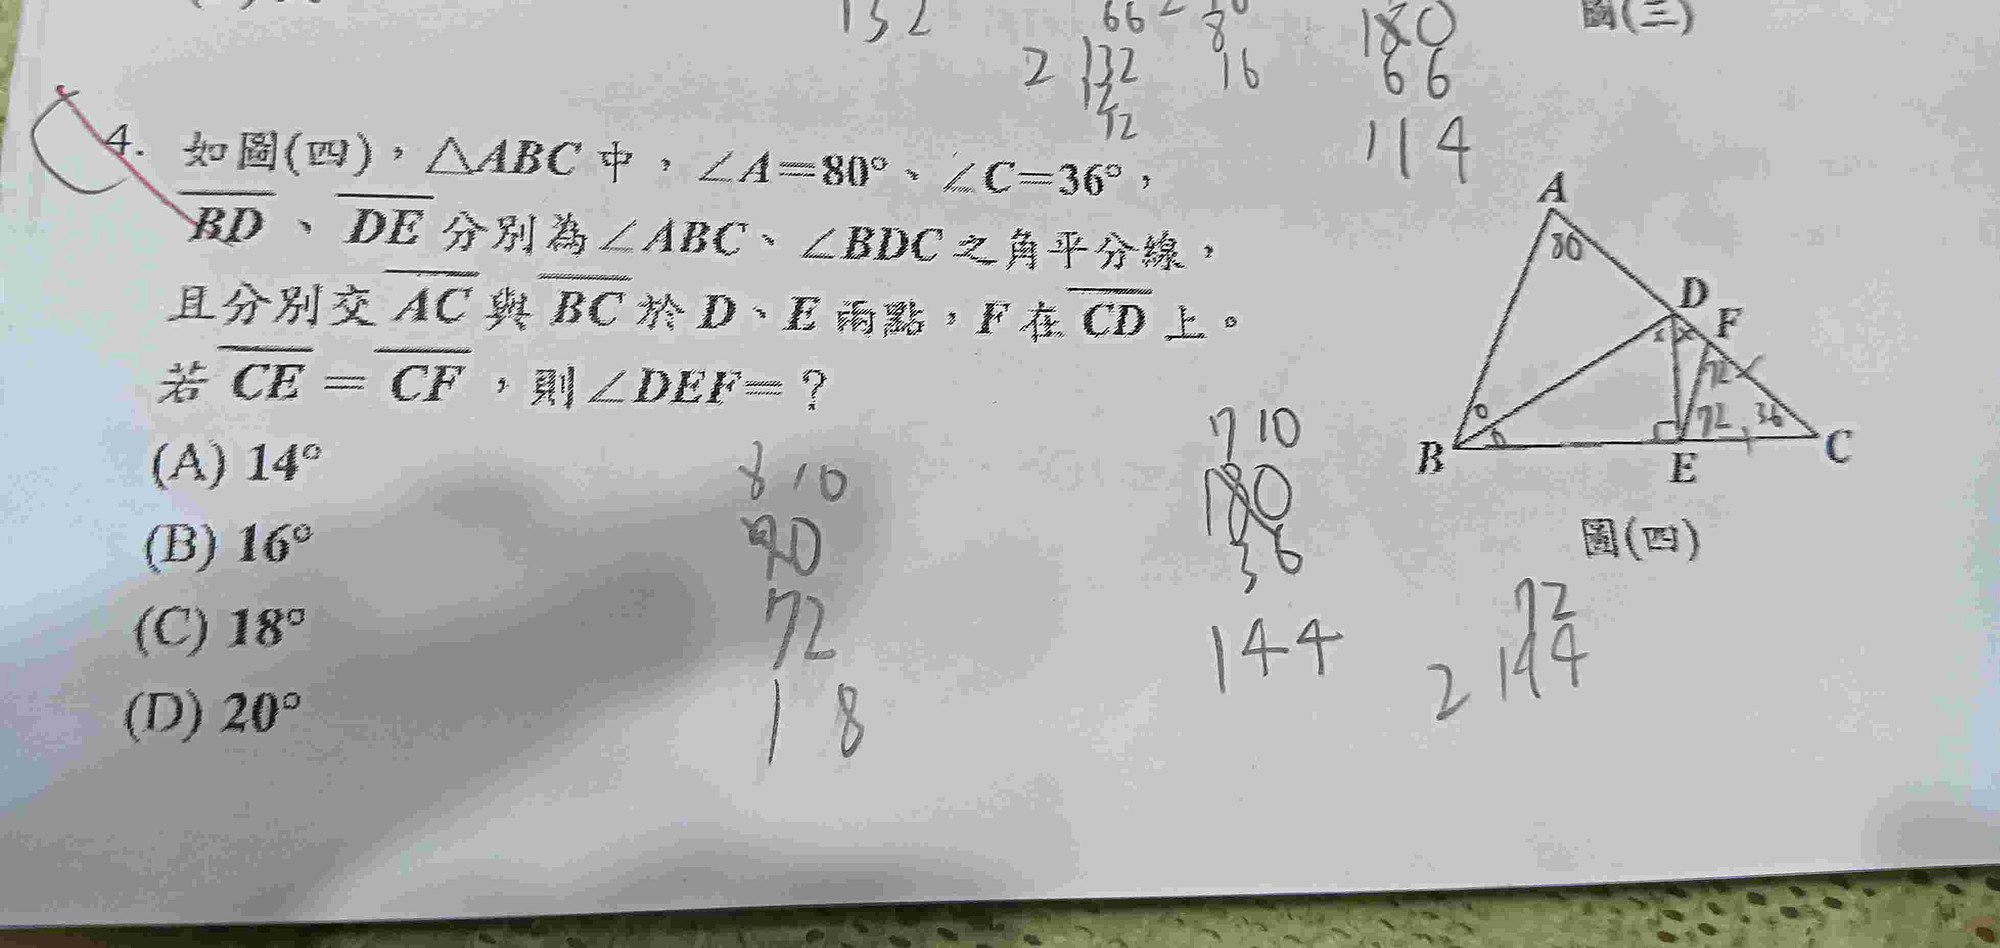 132
66
8
圖(三)
2 132 16
12
12
180
66
114
4. 如圖(四)，△ABC 中，∠A=80°、∠C=36°，
BD、DE 分別為∠ABC、∠BDC 之角平分線，
且分別交 AC 與 BC 於 D、E 兩點，F 在 CD 上。
若 CE = CF，則∠DEF=？
(A) 14°
(B) 16°
(C) 18°
(D) 20°
8 10
90
72
18
7 10
180
36
144
72
2 144
A
80
D
F
x x
72
72 36
B
E
C
圖(四)